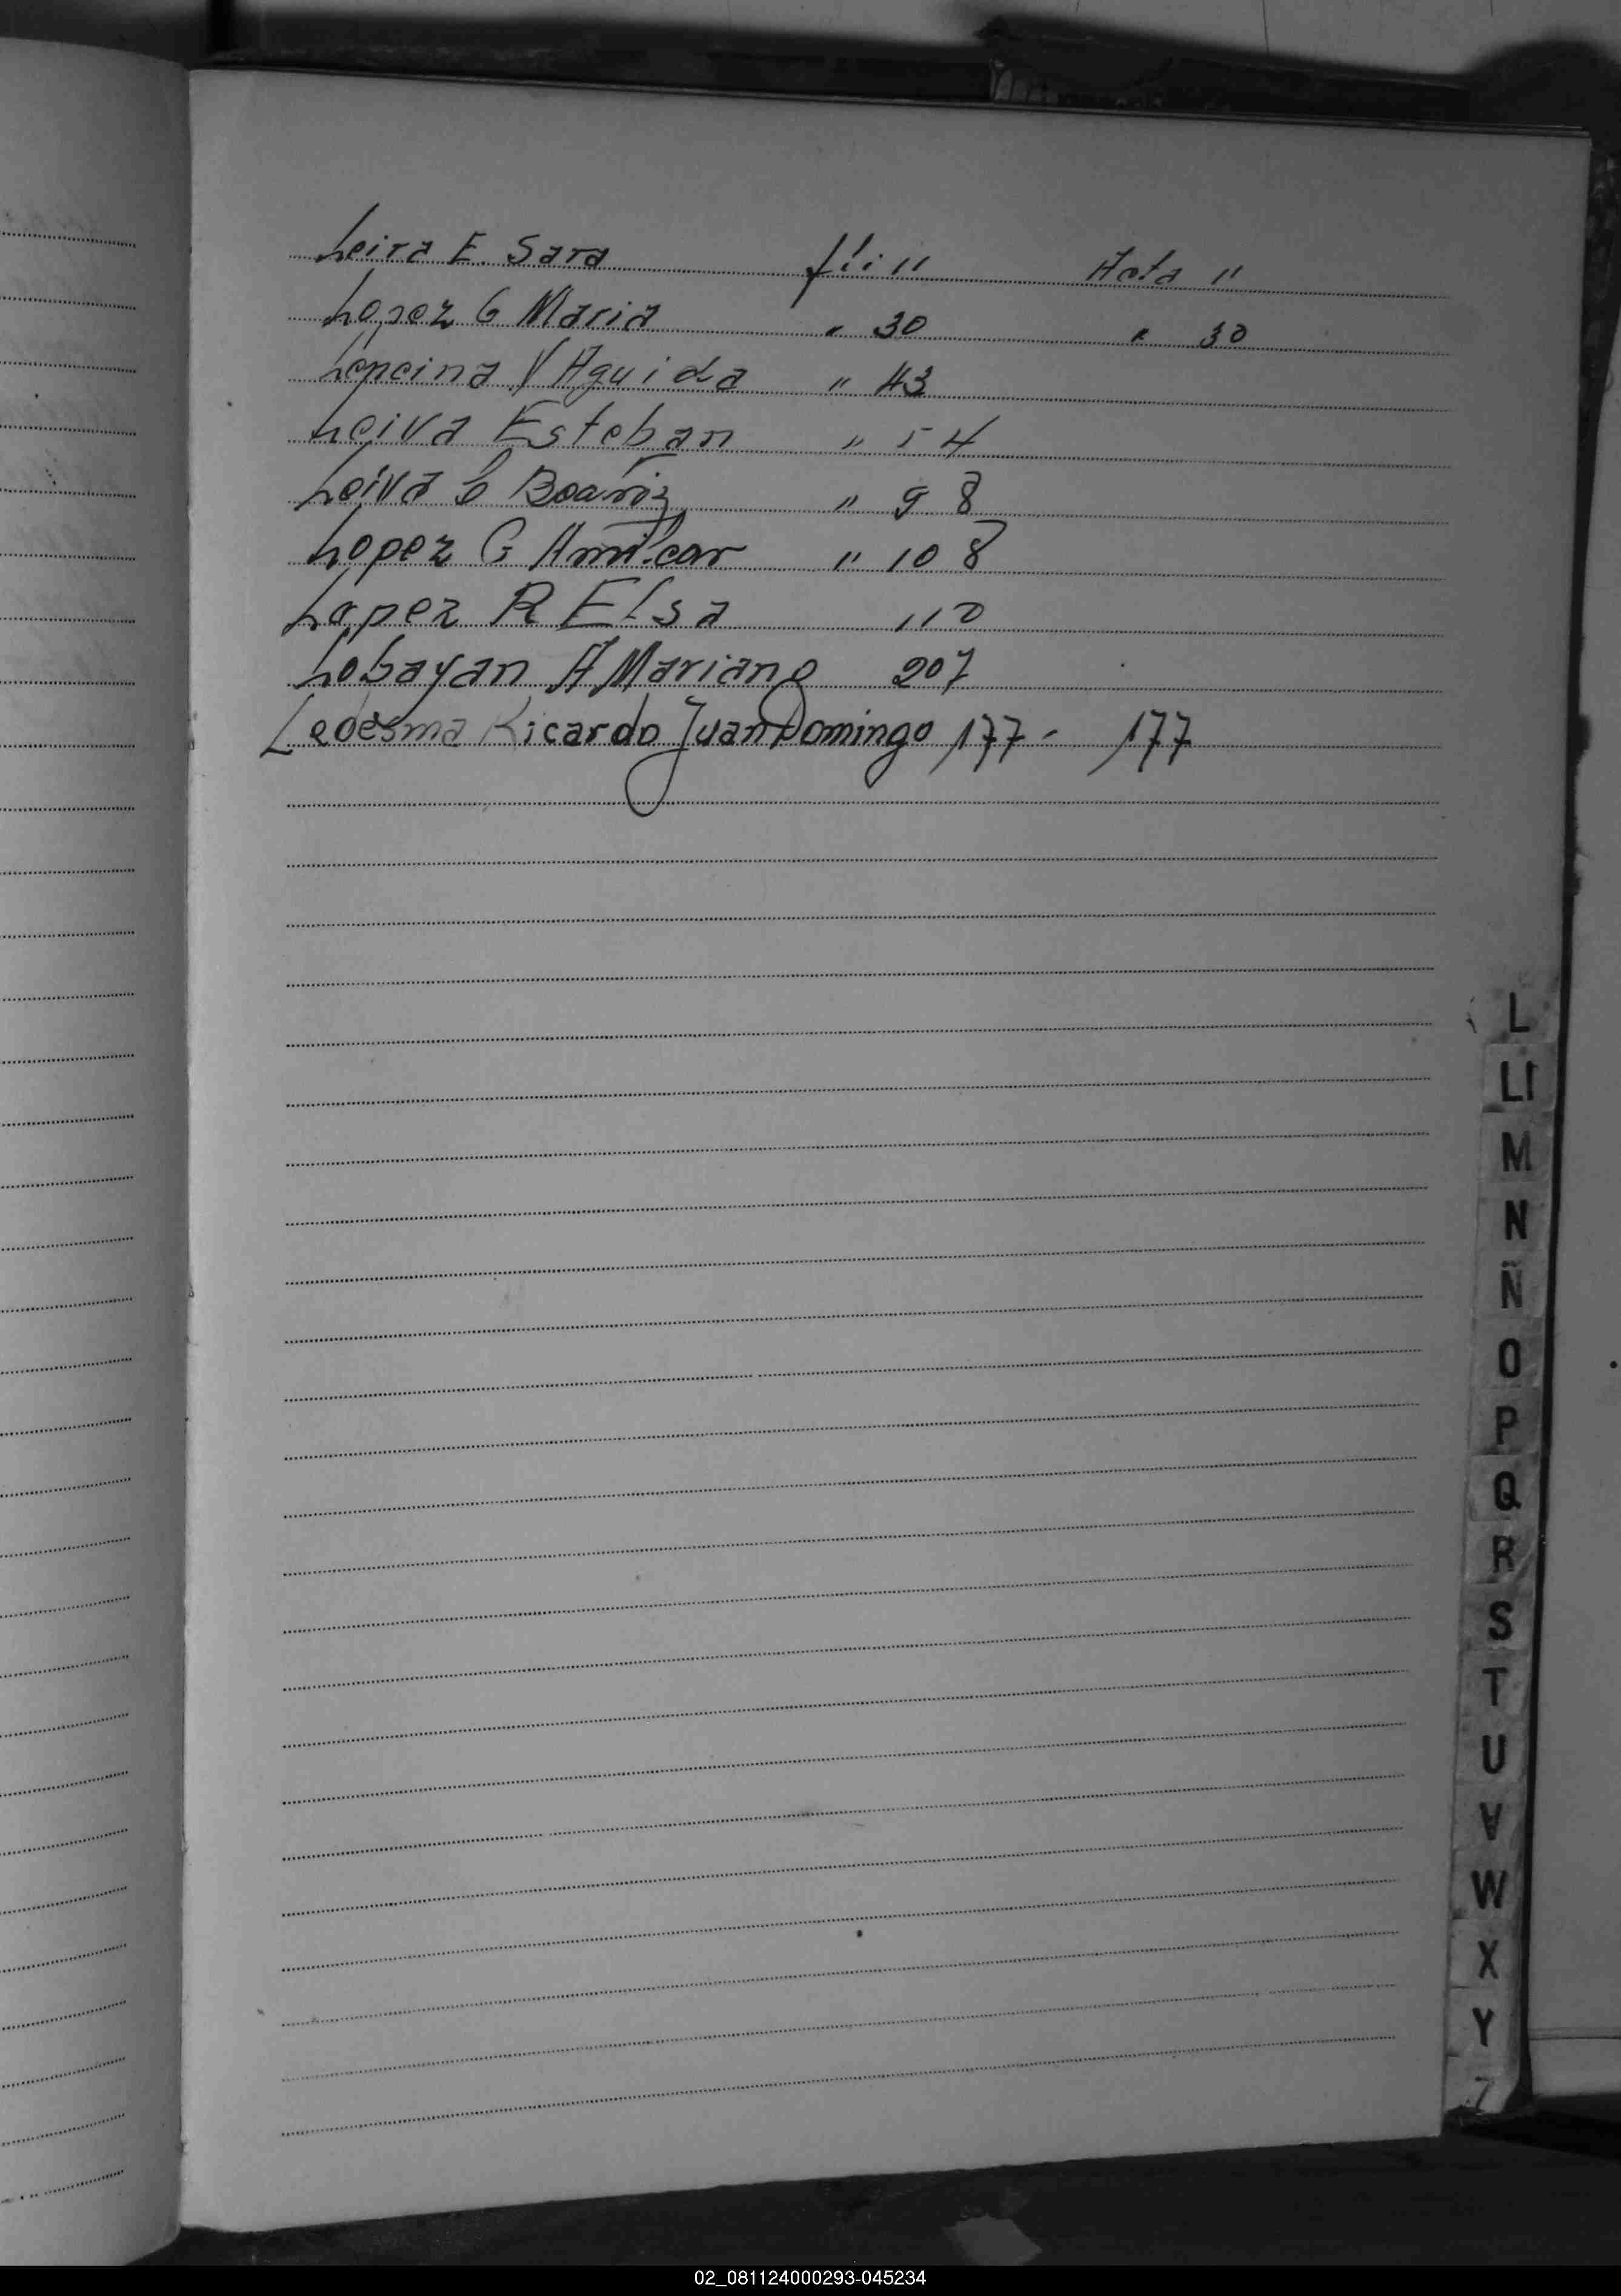 Leiva E. Sara fli: 11 Acta 11
Lopez G Maria " 30 " 30
Lencina V Aguida " 43
Leiva Esteban " 54
Leiva C Beatriz " 98
Lopez G Amilcar " 108
Lopez R Elsa 110
Lobayan A Mariano 207
Ledesma Ricardo Juan Domingo 177 - 177
L
Ll
M
N
Ñ
O
P
Q
R
S
T
U
V
W
X
Y
Z
02_081124000293-045234